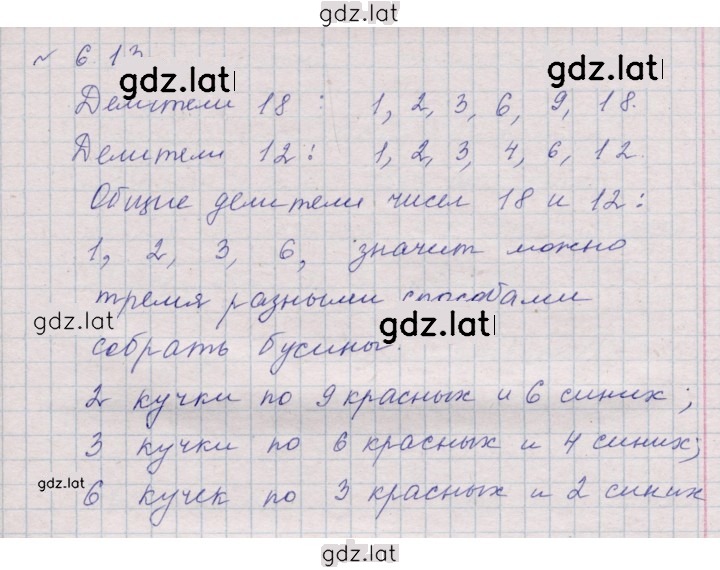 gdz.lat
№ 6.13
gdz.lat
gdz.lat
Делители 18 : 1, 2, 3, 6, 9, 18.
Делители 12 : 1, 2, 3, 4, 6, 12.
Общие делители чисел 18 и 12 :
1, 2, 3, 6, значит можно
тремя разными способами
gdz.lat
gdz.lat
собрать бусины.
2 кучки по 9 красных и 6 синих ;
3 кучки по 6 красных и 4 синих;
gdz.lat
6 кучек по 3 красных и 2 синих
gdz.lat